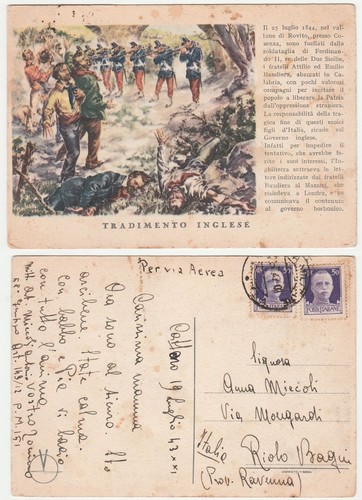 Il 25 luglio 1844, nel val-
lone di Rovito, presso Co-
senza, sono fucilati dalla
soldataglia di Ferdinan-
do II, re delle Due Sicilie,
i fratelli Attilio ed Emilio
Bandiera, sbarcati in Ca-
labria, con pochi valorosi
compagni per incitare il
popolo a liberare la Patria
dall'oppressione straniera.
La responsabilità della tra-
gica fine di questi eroici
figli d'Italia, ricade sul
Governo inglese.
Infatti per impedire il
tentativo, che avrebbe fe-
rito i suoi interessi, l'In-
ghilterra sottraeva le
lettere indirizzate dai fratelli
Bandiera al Mazzini, che
risiedeva a Londra, e ne
comunicava il contenuto
al governo borbonico.
TRADIMENTO INGLESE
Per via Aerea
50
50
POSTE ITALIANE
Cattaro 19 luglio 43 XXI
Carissima mamma
Ora sono al sicuro. Sto
benone. State calma.
con babbo e Pia vi bacio
con tutta l'anima
vostro
P.M. 151
Signora
Anna Miccoli
Via Mongardi
Riolo Bagni
(Prov. Ravenna)
Italia